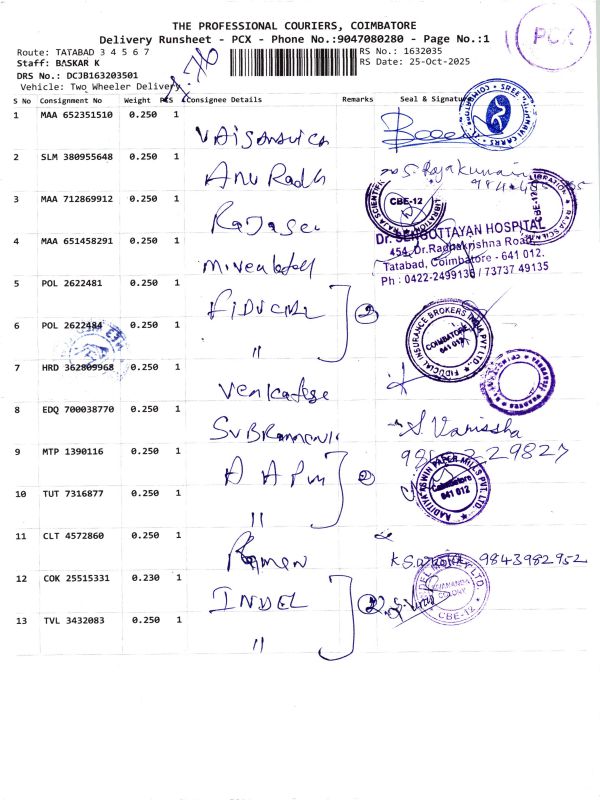 THE PROFESSIONAL COURIERS, COIMBATORE
Delivery Runsheet - PCX - Phone No.:9047080280 - Page No.:1
PCX
Route: TATABAD 3 4 5 6 7
RS No.: 1632035
Staff: BASKAR K
RS Date: 25-Oct-2025
DRS No.: DCJB163203501
Vehicle: Two Wheeler Delivery
S No Consignment No Weight PCS Consignee Details Remarks Seal & Signature
1 MAA 652351510 0.250 1
2 SLM 380955648 0.250 1 Anu Radh
S. Rajakumari
3 MAA 712869912 0.250 1
CBE-12
Dr. SENGOTTAYAN HOSPITAL
454, Dr.Radhakrishna Road
Tatabad, Coimbatore - 641 012.
Ph : 0422-2499136 / 73737 49135
4 MAA 651458291 0.250 1
5 POL 2622481 0.250 1 FIDUCIAL
2
6 POL 2622484 0.250 1 "
FIDUCIAL INSURANCE BROKERS INDIA PVT LTD.,
COIMBATORE
641 012
7 HRD 362809968 0.250 1 Venkatese
8 EDQ 700038770 0.250 1
S Varissha
9 MTP 1390116 0.250 1 A APM
2
AADITIYA ASWIN PAPER MILLS PVT. LTD.
Coimbatore
641 012
10 TUT 7316877 0.250 1 "
11 CLT 4572860 0.250 1 Ramen
9843982952
12 COK 25515331 0.230 1 INDEL
2
INDEL MONEY LTD.
CBE-12
13 TVL 3432083 0.250 1 "